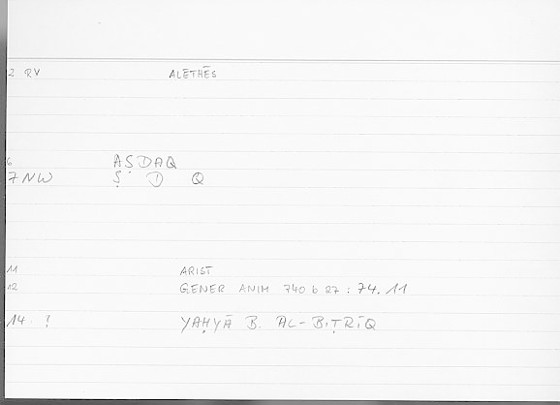 2 RV ALĒTHĒS
6 AṢDAQ
7 NW Ṣ D Q
11 ARIST
12 GENER ANIM 740 b 27 : 74.11
14. ! YAḤYĀ B. AL-BIṬRĪQ